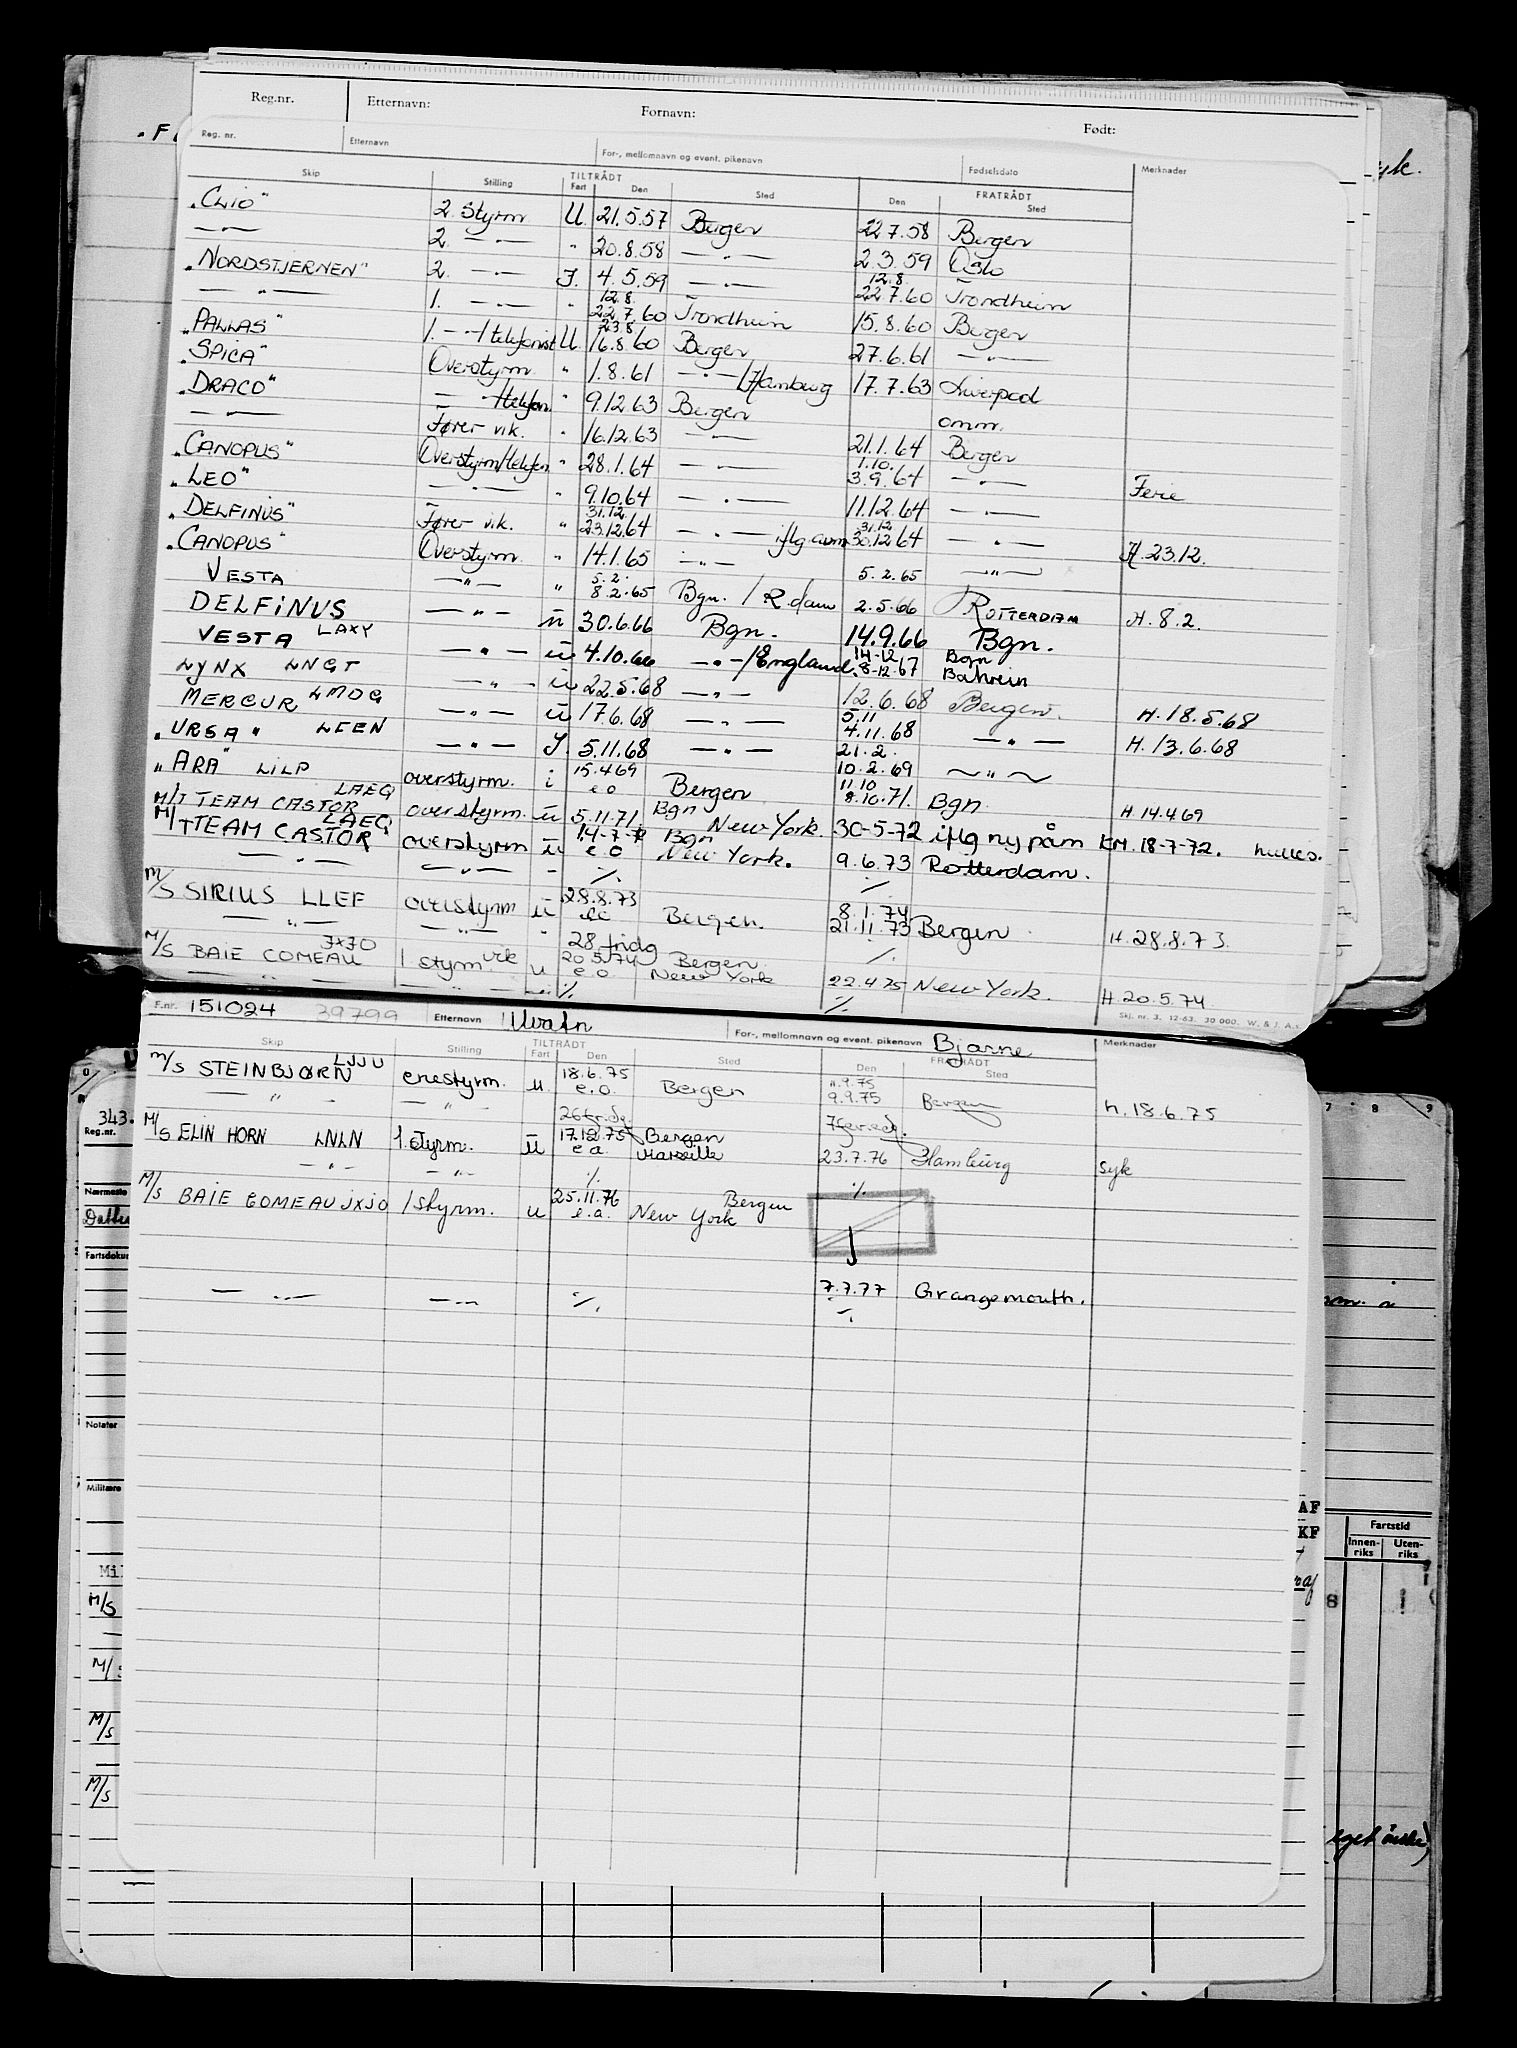 Reg.nr. Etternavn: Fornavn: Født:
Reg. nr. Etternavn For-, mellomnavn og event. pikenavn Fødselsdato Merknader
Skip Stilling TILTRÅDT FRATRÅDT
Fart Den Sted Den Sted
"CLIO" 2. Styrm U. 21.5.57 Bergen 22.7.58 Bergen
—"— 2. —"— " 20.8.58 —"— 2.3.59 Oslo
"NORDSTJERNEN" 2. —"— I. 4.5.59 —"— 12.8. 22.7.60 Trondheim
—"— 1. —"— " 12.8. 22.7.60 Trondheim 15.8.60 Bergen
"PALLAS" 1. —"—/telefonist U. 23.8. 16.8.60 Bergen 27.6.61 —"—
"SPICA" Overstyrm. " 1.8.61 —"—/Hamburg 17.7.63 Liverpool
"DRACO" —"—/telefon. " 9.12.63 Bergen omm.
—"— Fører vik. " 16.12.63 —"— 21.1.64 Bergen
"CANOPUS" Overstyrm/telefon " 28.1.64 —"— 1.10. 3.9.64 —"— Ferie
"LEO" —"— " 9.10.64 —"— 11.12.64 —"—
"DELFINUS" Fører vik. " 31.12. 23.12.64 —"— iflg avm 31.12 30.12.64 —"— H. 23.12.
"CANOPUS" Overstyrm. " 14.1.65 —"— 5.2.65 —"—
VESTA —"— " 5.2. 8.2.65 Bgn. / R.dam 2.5.66 ROTTERDAM H. 8.2.
DELFINUS —"— u 30.6.66 Bgn. 14.9.66 Bgn.
VESTA LAXY —"— u 4.10.66 —"—/England 14-12 8-12-67 Bgn Bahrein
LYNX LNGT —"— u 22.5.68 —"— 12.6.68 Bergen. H. 18.5.68
MERCUR LMOG —"— u 17.6.68 —"— 5.11 4.11.68 —"— H. 13.6.68
"URSA" LEEN —"— I. 5.11.68 —"— 21.2. 10.2.69 —"—
"ARA" LILP overstyrm. i 15.4.69 e.o Bergen 11.10 8.10.71. Bgn. H 14.4.69
M/T TEAM CASTOR LAEQ overstyrm. u 5.11.71. Bgn New York 30-5-72 iflg ny påm KM. 18-7-72.
M/T TEAM CASTOR LAEQ overstyrm u 14-7-72 e.o Bgn New York. 9.6.73 Rotterdam.
—"— —"— - ./. ./.
M/S SIRIUS LLEF overstyrm u 28.8.73 e.o Bergen. 8.1.74 21.11.73 Bergen H. 28.8.73.
—"— —"— " 28 fridg ./.
M/S BAIE COMEAU JXJO 1 styrm. vik u 20.5.74 e.o. Bergen New York 22.4.75 New York. H. 20.5.74
—"— —"— ./. ./.
Skj. nr. 3. 12-63. 30 000. W. & J. A.s.
F.nr. 151024 39799 Etternavn Ulvatn For-, mellomnavn og event. pikenavn Bjarne Merknader
Skip Stilling TILTRÅDT FRATRÅDT
Fart Den Sted Den Sted
M/S STEINBJØRN LJJU enestyrm. u. 18.6.75 e.o. Bergen 11.9.75 9.9.75 Bergen h. 18.6.75
—"— —"— 26 fr.dg 7 fer.edg.
M/S ELIN HORN LNLN 1. styrm. u 17.12.75 e.a. Bergen Marseille 23.7.76 Hamburg syk
—"— —"— ./. ./.
M/S BAIE COMEAU JXJO 1 styrm. u 25.11.76 e.a. Bergen New York
7.7.77 Grangemouth.
—"— —"— ./. ./.
343.
Reg.nr.
Nærmeste
Fartsdokum
Notater
Militære
Mil
M/S
M/S
M/S
M/S
7 8 9
AF
KF
Fartstid
Innen-riks Uten-riks
8